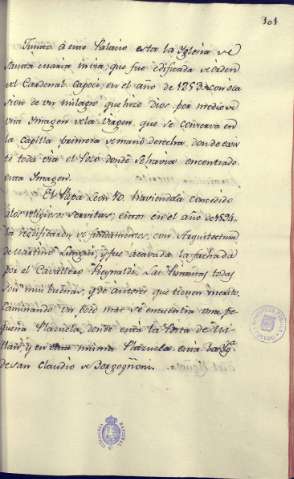 101
Junto á este Palacio esta la Iglesia de
Santa maria in via, que fue edificada de orden
del Cardenal Capoci, en el año de 1253 con oca
sion de un milagro que hizo Dios por medio de
una Imagen de la Virgen, que se conserva en
la capilla primera á mano derecha, donde exis
te todavia el Pozo donde se havia encontrado
esta Imagen.
El Papa Leon 10. haviendola concedido
a los religiosos Servitas, estos en el año de 1594.
la redificaron de fundamentos, con Arquitectura
de Martino Lungui, y fue acavada la fachada
por el Cavallero Reynaldi. Las Pinturas todas
son mui buenas y de autores que tienen merito.
Caminando un poco mas se encuentra una pe
queña Plazuela, donde esta la Posta de Mi
lan; y en esta misma Plazuela esta la Ygª
de San Claudio de Borgoñones.